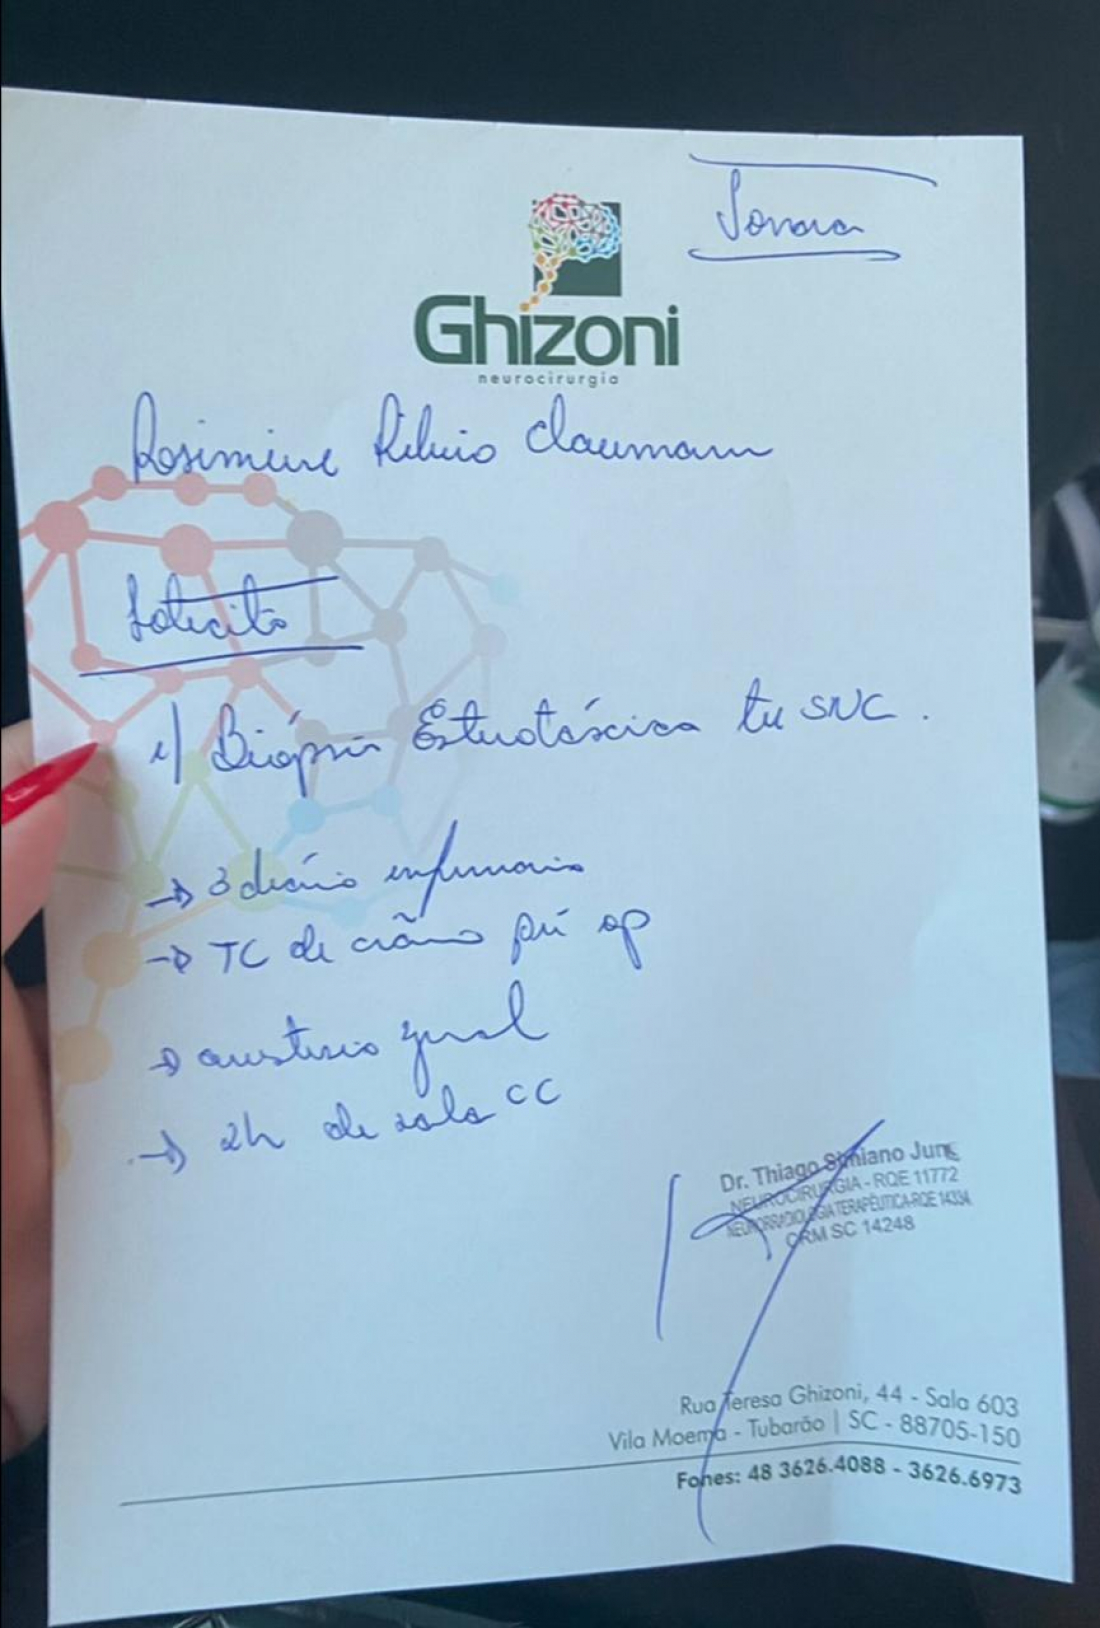 Ghizoni
neurocirurgia
Rosimeire Ribeiro Claumann
Solicito
1/ Biópsia Esterotáxica tu SNC.
→ 3 diária enfermaria
→ TC de crânio pré op
→ anestesia geral
→ 2h de sala CC
Dr. Thiago
NEUROCIRURGIA - RQE 11772
NEURORRADIOLOGIA TERAPÊUTICA-RQE
CRM SC 14248
Rua Teresa Ghizoni, 44 - Sala 603
Vila Moema - Tubarão | SC - 88705-150
Fones: 48 3626.4088 - 3626.6973